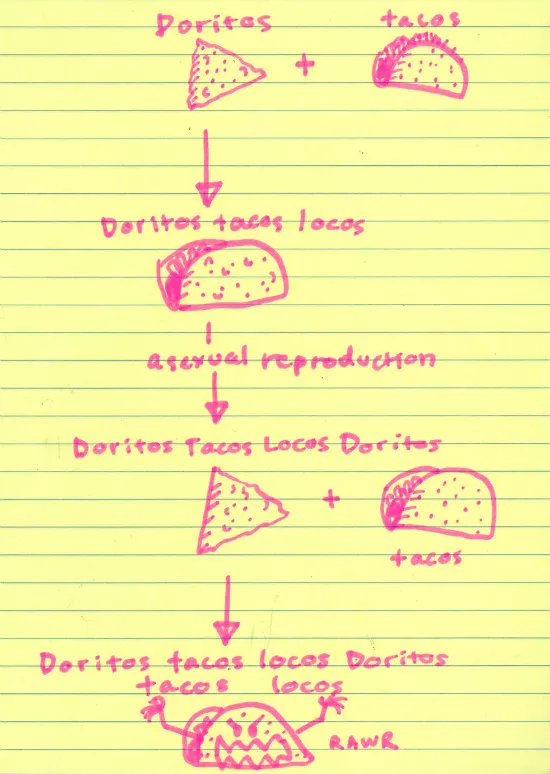 Doritos
tacos
+
Doritos tacos locos
asexual reproduction
Doritos Tacos Locos Doritos
+
tacos
Doritos tacos locos Doritos
tacos locos
RAWR